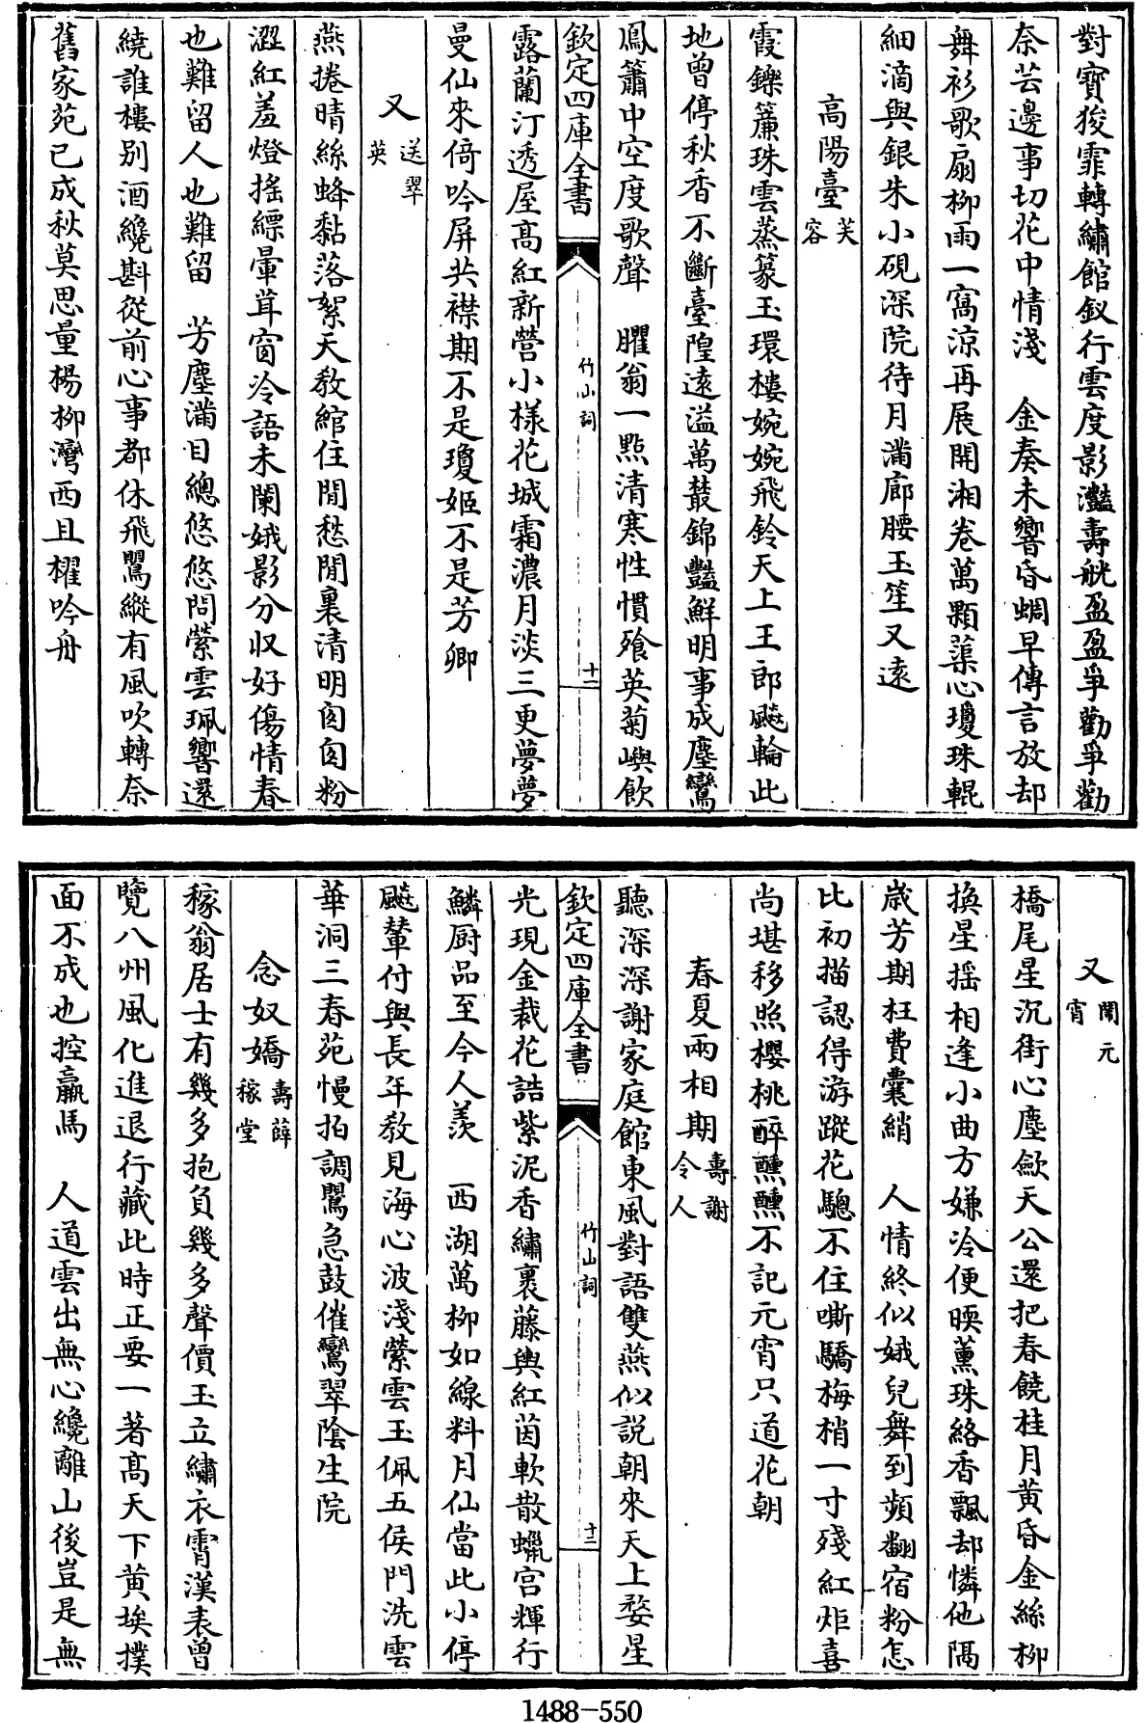 對寶猊霏轉繡館釵行雲度影灩壽觥盈盈爭勸爭勸
奈芸邊事切花中情淺　金奏未響昏蜩早傳言放却
舞衫歌扇柳雨一窩涼再展開湘卷萬顆蕖心瓊珠輥
細滴與銀朱小硯深院待月滿廊腰玉笙又遠
高陽臺芙蓉
霞鑠簾珠雲蒸篆玉環樓婉婉飛鈴天上王郎飈輪此
地曾停秋香不斷臺隍遠溢萬叢錦豔鮮明事成塵鸞
鳳簫中空度歌聲　臞翁一㸃清寒性慣飱英菊嶼飲
欽定四庫全書
竹山詞
十二
露蘭汀透屋高紅新營小樣花城霜濃月淡三更夢夢
曼仙來倚吟屏共襟期不是瓊姬不是芳卿
又送翠英
燕捲晴絲蜂黏落絮天教綰住閒愁閒裏清明匆匆粉
澀紅羞燈搖縹暈茸窗冷語未闌娥影分収好傷情春
也難留人也難留　芳塵滿目總悠悠問縈雲珮響還
繞誰樓别酒纔斟從前心事都休飛鶯縱有風吹轉奈
舊家苑已成秋莫思量楊柳灣西且櫂吟舟
又閙元宵
橋尾星沉街心塵歛天公還把春饒桂月黄昏金絲柳
換星摇相逢小曲方嫌冷便暝薰珠絡香飄却憐他隔
歲芳期枉費囊綃　人情終似娥兒舞到頻翻宿粉怎
比初描認得游蹤花驄不住嘶驕梅梢一寸殘紅炬喜
尚堪移照櫻桃醉醺醺不記元宵只道花朝
春夏兩相期壽謝令人
聽深深謝家庭館東風對語雙燕似説朝來天上婺星
欽定四庫全書
竹山詞
十三
光現金裁花誥紫泥香繡裹藤輿紅茵軟散蠟宫輝行
鱗厨品至今人羡　西湖萬柳如線料月仙當此小停
飈輦付與長年教見海心波淺縈雲玉佩五侯門洗雪
華洞三春苑慢拍調鶯急鼓催鸞翠陰生院
念奴嬌壽薛稼堂
稼翁居士有幾多抱負幾多聲價玉立繡衣霄漢表曾
覽八州風化進退行藏此時正要一著髙天下黄埃撲
面不成也控羸馬　人道雲出無心纔離山後豈是無
1488-550